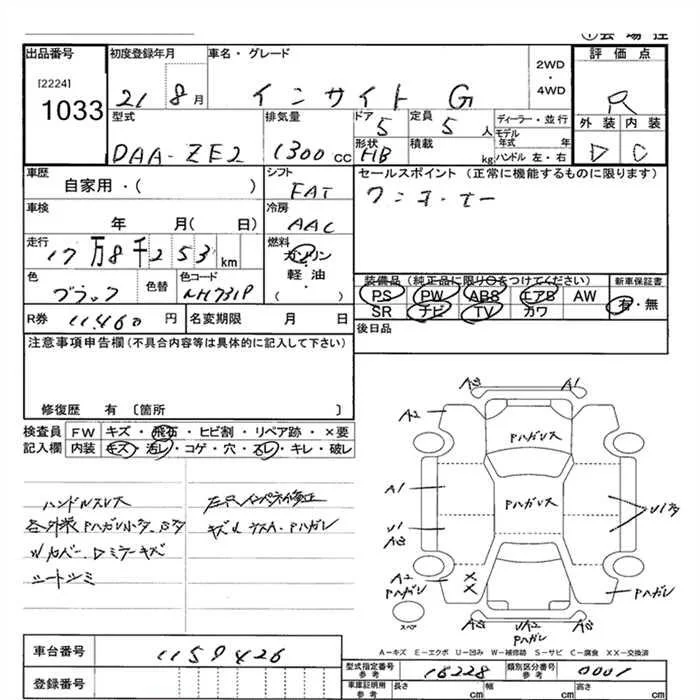 出品番号
[2224]
1033
初度登録年月
21 8月
車名・グレード
インサイト G
2WD
・
4WD
評価点
R
外装 内装
D C
型式
DAA-ZE2
排気量
1300cc
ドア
5
定員
5人
形状
HB
積載
kg
ディーラー・並行
モデル
年式 年
ハンドル 左・右
車歴
自家用・( )
シフト
FAT
セールスポイント (正常に機能するものに限ります)
ワンオーナー
車検
年 月( 日)
冷房
AAC
走行
17万8千253km
燃料
ガソリン
・
軽油
( )
色
ブラック
色替
色コード
NH731P
装備品(純正品に限り○をつけてください)
PS PW ABS エアB AW
SR ナビ TV カワ
新車保証書
有・無
R券 11,460円
名変期限 月 日
後日品
注意事項申告欄(不具合内容等は具体的に記入して下さい)
修復歴 有 〔箇所 〕
検査員
記入欄
FW キズ・飛石・ヒビ割・リペア跡・×要
内装 キズ・汚レ・コゲ・穴・スレ・キレ・破レ
ハンドルスレ大
各外装 Pハガレ小多、
カバー、Dミラーキズ
シートシミ
キズ Pハガレ
A1
A2
Pハガレ
Pハガレ大
A1
U1
A3
A2
Pハガレ
××
U1多
Pハガレ
UA2
Pハガレ
スペア
A-キズ E-エクボ U-凹み W-補修跡 S-サビ C-腐食 XX-交換済
車台番号
1159426
登録番号
型式指定番号
参考
16228
類別区分番号
参考
0001
車庫証明用
参考
長さ cm
幅 cm
高さ cm